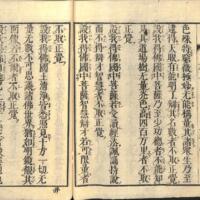 色殊特窮微極妙無能稱量其諸衆生乃至
逮得天眼有能明了辨其名數者不取正覺
設我得佛國中菩薩乃至少功德者不能知
見其道場樹無量光色高四百万里者不取
正覺
設我得佛國中菩薩若受讀經法諷誦持說
而不得辯才智慧者不取正覺
設我得佛國中菩薩智慧辯才若可限量者
不取正覺
設我得佛國土清淨皆悉照見十方一切無
量無數不可思議諸佛世界猶如明鏡覩其
面像若不爾者不取正覺